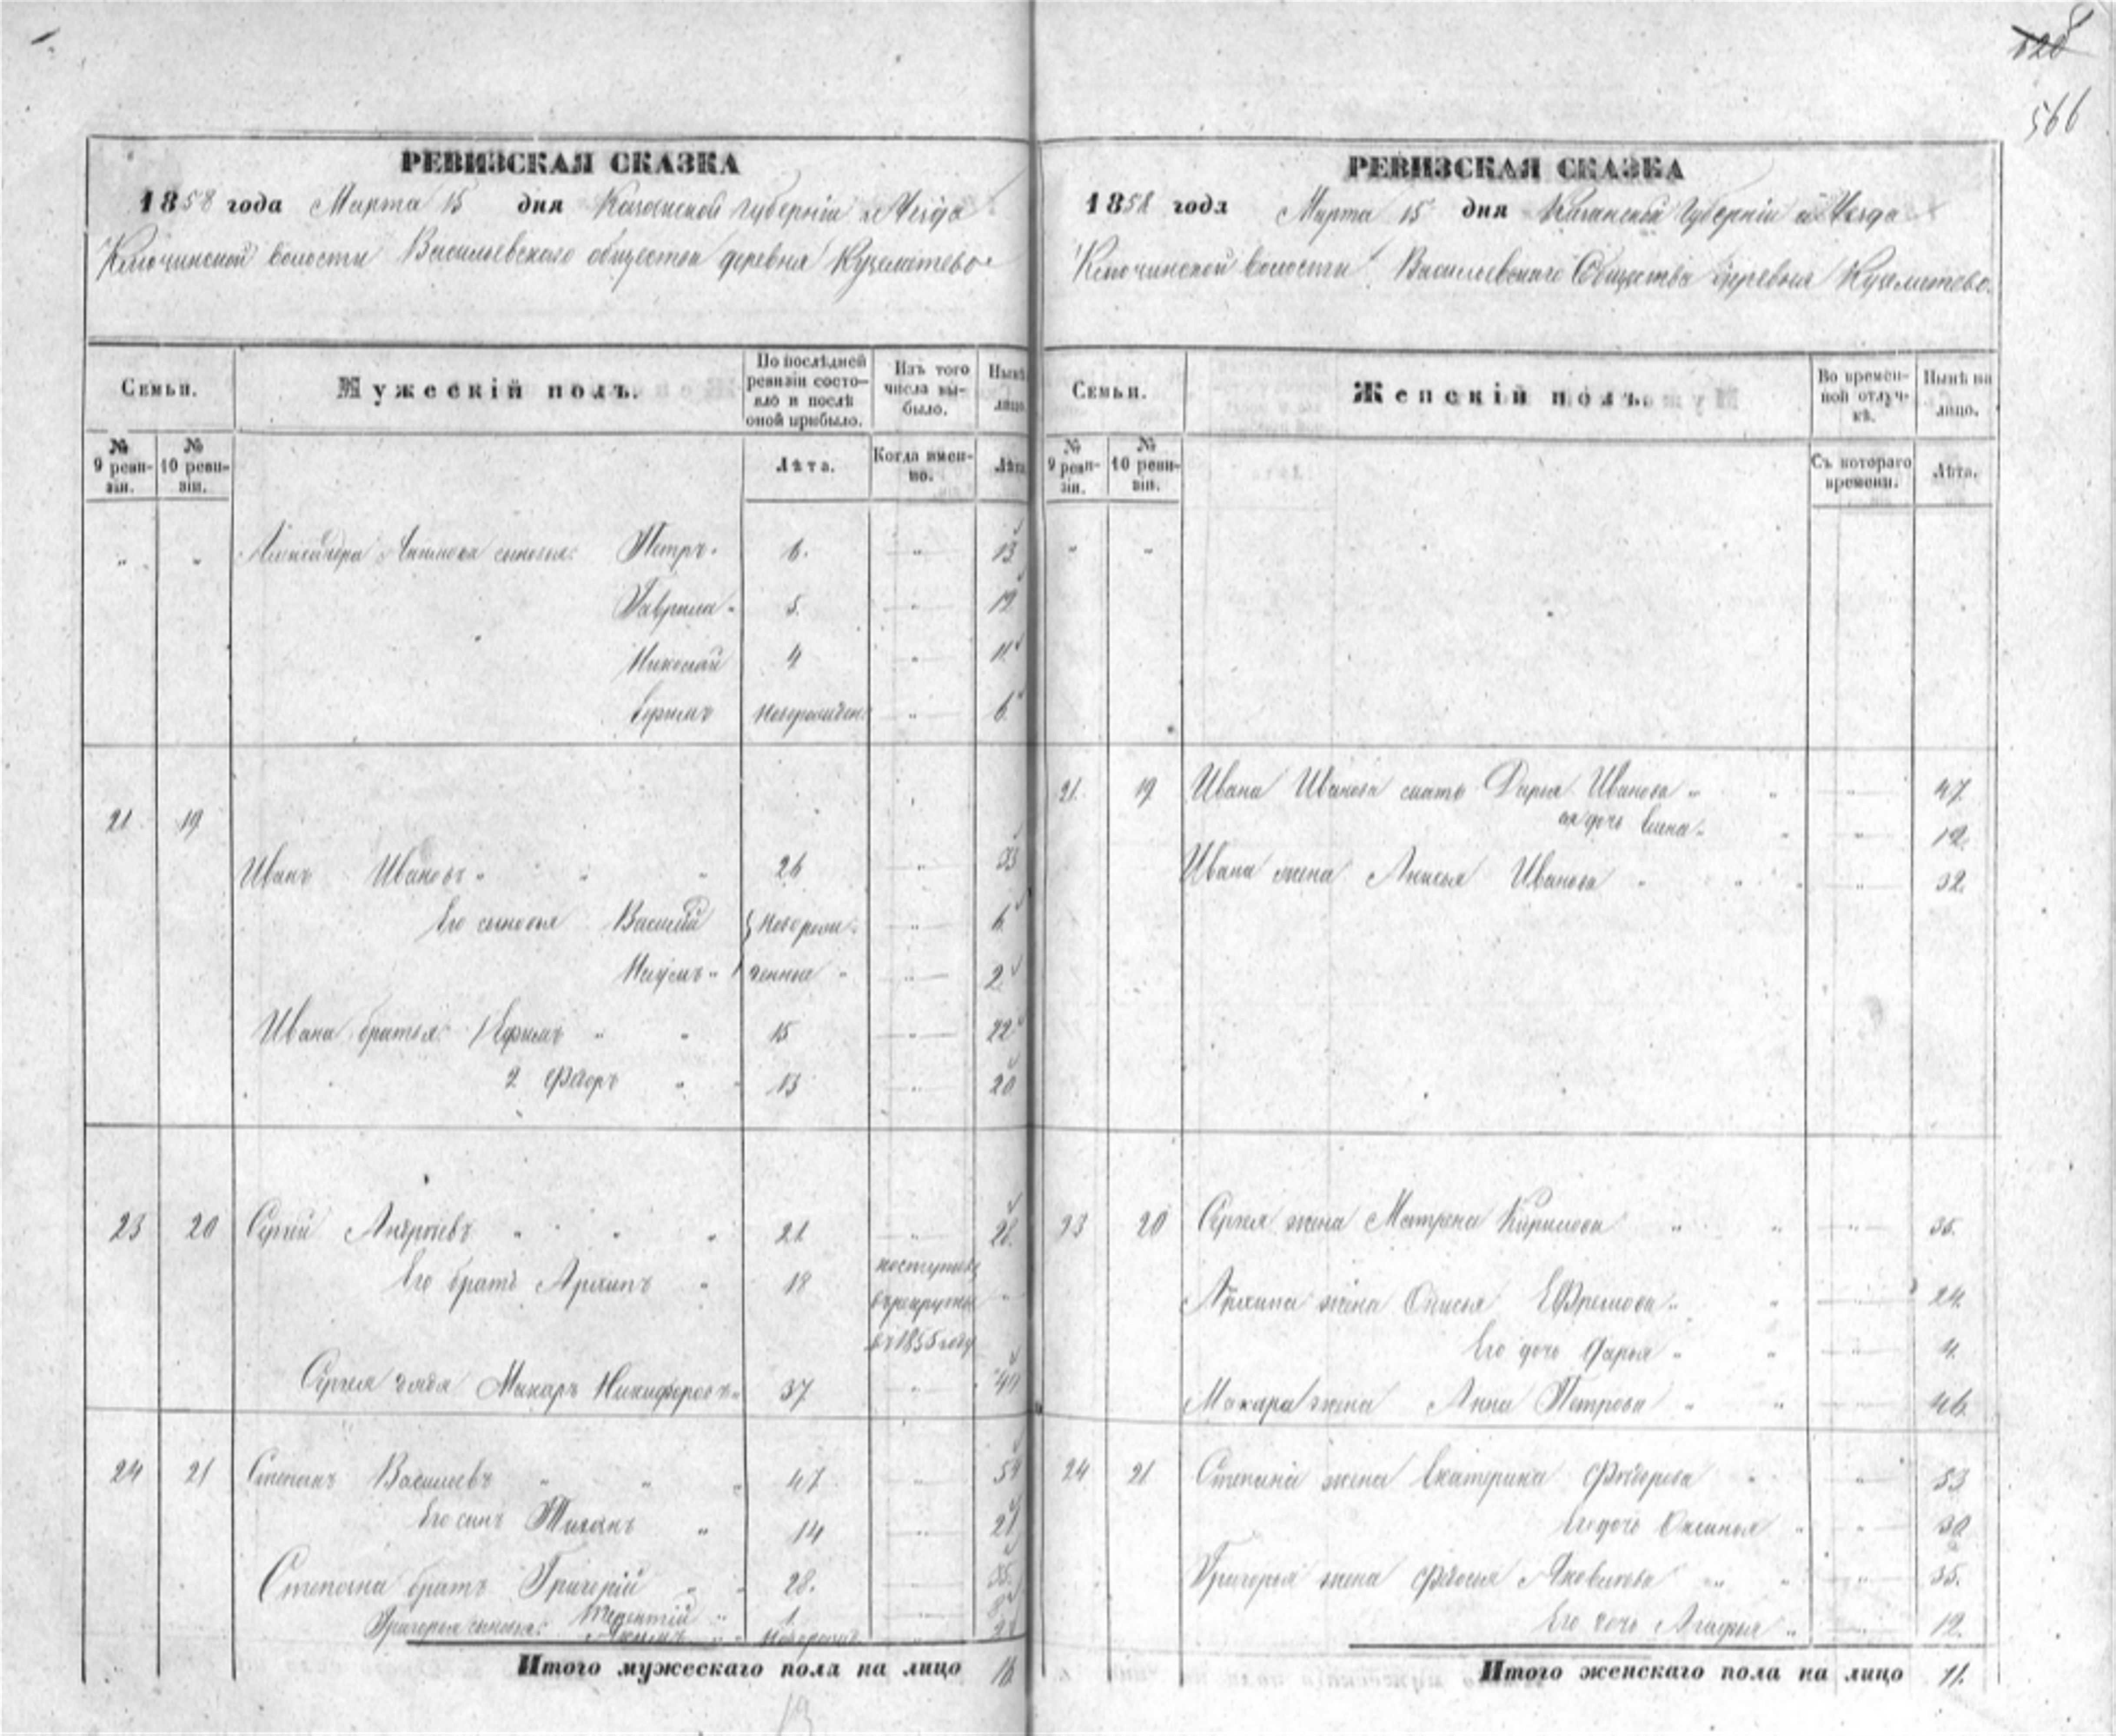 566
РЕВИЗСКАЯ СКАЗКА
1858 года Марта 15 дня Казанской губерніи и Уезда
Ключинской волости Васильевскаго общества деревня Кузмитево
Семьи.
Мужескій полъ.
По послѣдней ревизіи состояло и послѣ оной прибыло.
Изъ того числа выбыло.
Нынѣ лицо.
№ 9 ревизіи.
№ 10 ревизіи.
Лѣта.
Когда именно.
Лѣта
Александра сыновья: Петръ. 6. 13
Гаврила 5. 12
Николай 4 11
Ефимъ Новорожден. 6
21 19
Иванъ Ивановъ 26 33
Его сыновья Василій Новорож- 6
Наумъ денные 2
Ивана братья 1 Ефимъ 15 22
2 Ѳедоръ 13 20
23 20 Сергей Андреевъ 21 28
Его братъ Архипъ 18 поступилъ
в рекруты
въ 1855 году
Сергея дядя Макаръ Никифоровъ 37 44
24 21 Степанъ Васильевъ 47 54
Его сынъ 14 21
Степана братъ Григорій 28. 35
Григорья сыновья: Терентій 1. 8
Новорожд.
Итого мужескаго пола на лицо 16
РЕВИЗСКАЯ СКАЗКА
1858 года Марта 15 дня Казанской Губерніи и Уезда
Ключинской волости Васильевскаго Общества деревня Кузмитево.
Семьи.
Женскій полъ.
Во временной отлучкѣ.
Нынѣ на лицо.
№ 9 ревизіи.
№ 10 ревизіи.
Съ котораго времени.
Лѣта.
21. 19 Ивана Иванова мать Дарья Иванова 47
ея дочь Елена 12.
Ивана жена Анисья Иванова 32
23 20 Сергея жена Матрена Кирилова 35.
Архипа жена Ефремова 24
Его дочь Дарья 4
Макара жена Анна Петрова 46
24 21 Степана жена Екатерина Федорова 53
Его дочь Оксинья 30
Григорья жена Яковлева 35.
Его дочь Агафья 12.
Итого женскаго пола на лицо 11.